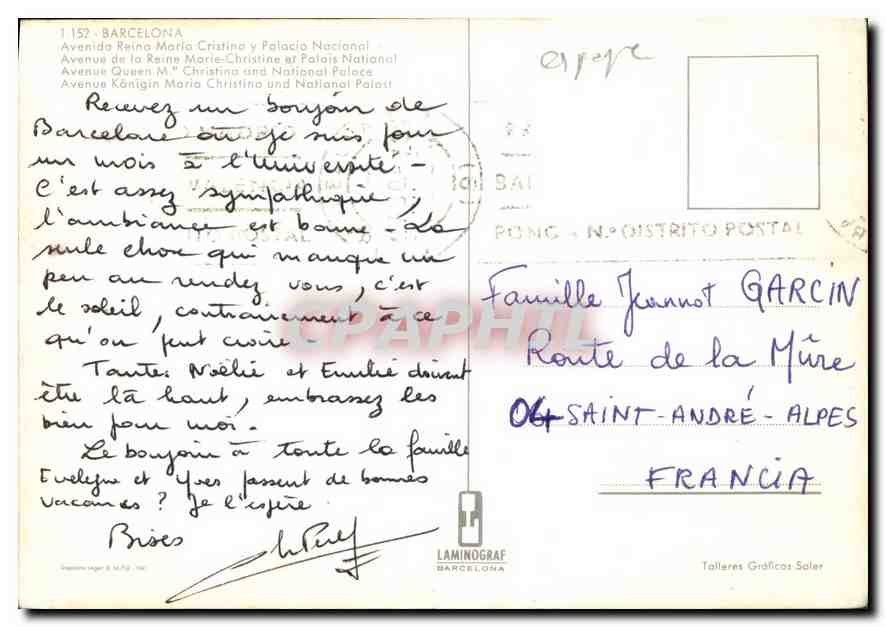 1 152 - BARCELONA
Avenida Reina María Cristina y Palacio Nacional
Avenue de la Reine Marie-Christine et Palais National
Avenue Queen M.ª Christina and National Palace
Avenue Königin Maria Christina und National Palast
Recevez un bonjour de
Barcelone où je suis pour
un mois à l'Université -
C'est assez sympathique,
l'ambiance est bonne - La
seule chose qui manque un
peu au rendez vous, c'est
le soleil, contrairement à ce
qu'on peut croire -
Tantes Noëlie et Emilie doivent
être là haut, embrassez les
bien pour moi.
Le bonjour à toute la famille
Evelyne et Yves passent de bonnes
vacances ? Je l'espère.
Bises
BAR
PONG - N.º DISTRITO POSTAL
TO POSTAL
Famille Jeannot GARCIN
Route de la Mûre
04 SAINT-ANDRÉ-ALPES
FRANCIA
CPAPHIL
L
LAMINOGRAF
BARCELONA
Talleres Gráficos Soler